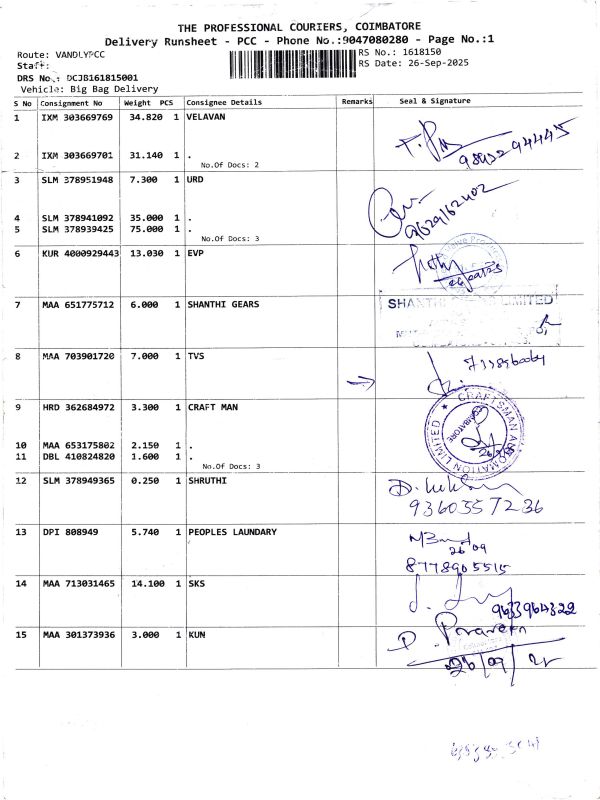 THE PROFESSIONAL COURIERS, COIMBATORE
Delivery Runsheet - PCC - Phone No.:9047080280 - Page No.:1
Route: VANDLYPCC
RS No.: 1618150
Staff:
RS Date: 26-Sep-2025
DRS No.: DCJB161815001
Vehicle: Big Bag Delivery
S No Consignment No Weight PCS Consignee Details Remarks Seal & Signature
1 IXM 303669769 34.820 1 VELAVAN
2 IXM 303669701 31.140 1 .
No.Of Docs: 2
3 SLM 378951948 7.300 1 URD
9629162402
4 SLM 378941092 35.000 1 .
5 SLM 378939425 75.000 1 .
No.Of Docs: 3
6 KUR 4000929443 13.030 1 EVP
7 MAA 651775712 6.000 1 SHANTHI GEARS
SHANTHI GEARS LIMITED
8 MAA 703901720 7.000 1 TVS
9 HRD 362684972 3.300 1 CRAFT MAN
CRAFTSMAN AUTOMATION LIMITED
COIMBATORE
10 MAA 653175802 2.150 1 .
11 DBL 410824820 1.600 1 .
No.Of Docs: 3
12 SLM 378949365 0.250 1 SHRUTHI
9360557236
13 DPI 808949 5.740 1 PEOPLES LAUNDARY
26/09
8778905515
14 MAA 713031465 14.100 1 SKS
9633964322
15 MAA 301373936 3.000 1 KUN
P. Praveen